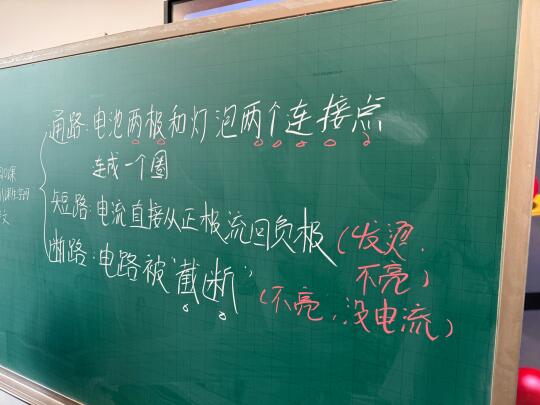 通路:电池两极和灯泡两个连接点
连成一个圈
短路:电流直接从正极流回负极(发烫,
不亮)
断路:电路被"截断"(不亮,没电流)